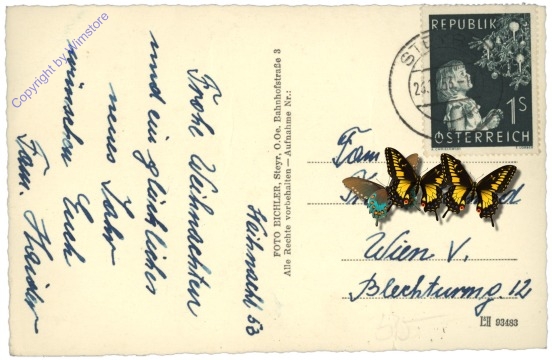 Copyright by Wimstore
Frohe Weihnachten
und ein glückliches
neues Jahr
wünschen Euch
Fam. Haider
Weihnacht 53
FOTO EICHLER, Steyr, O.Oe. Bahnhofstraße 3
Alle Rechte vorbehalten — Aufnahme Nr.:
REPUBLIK
1S
ÖSTERREICH
Fam.
Wien V.
Blechturmg. 12
93483